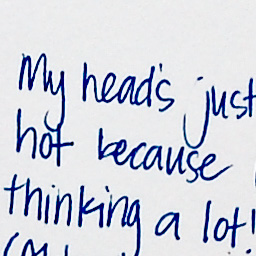 My head's just
hot because
thinking a lot!